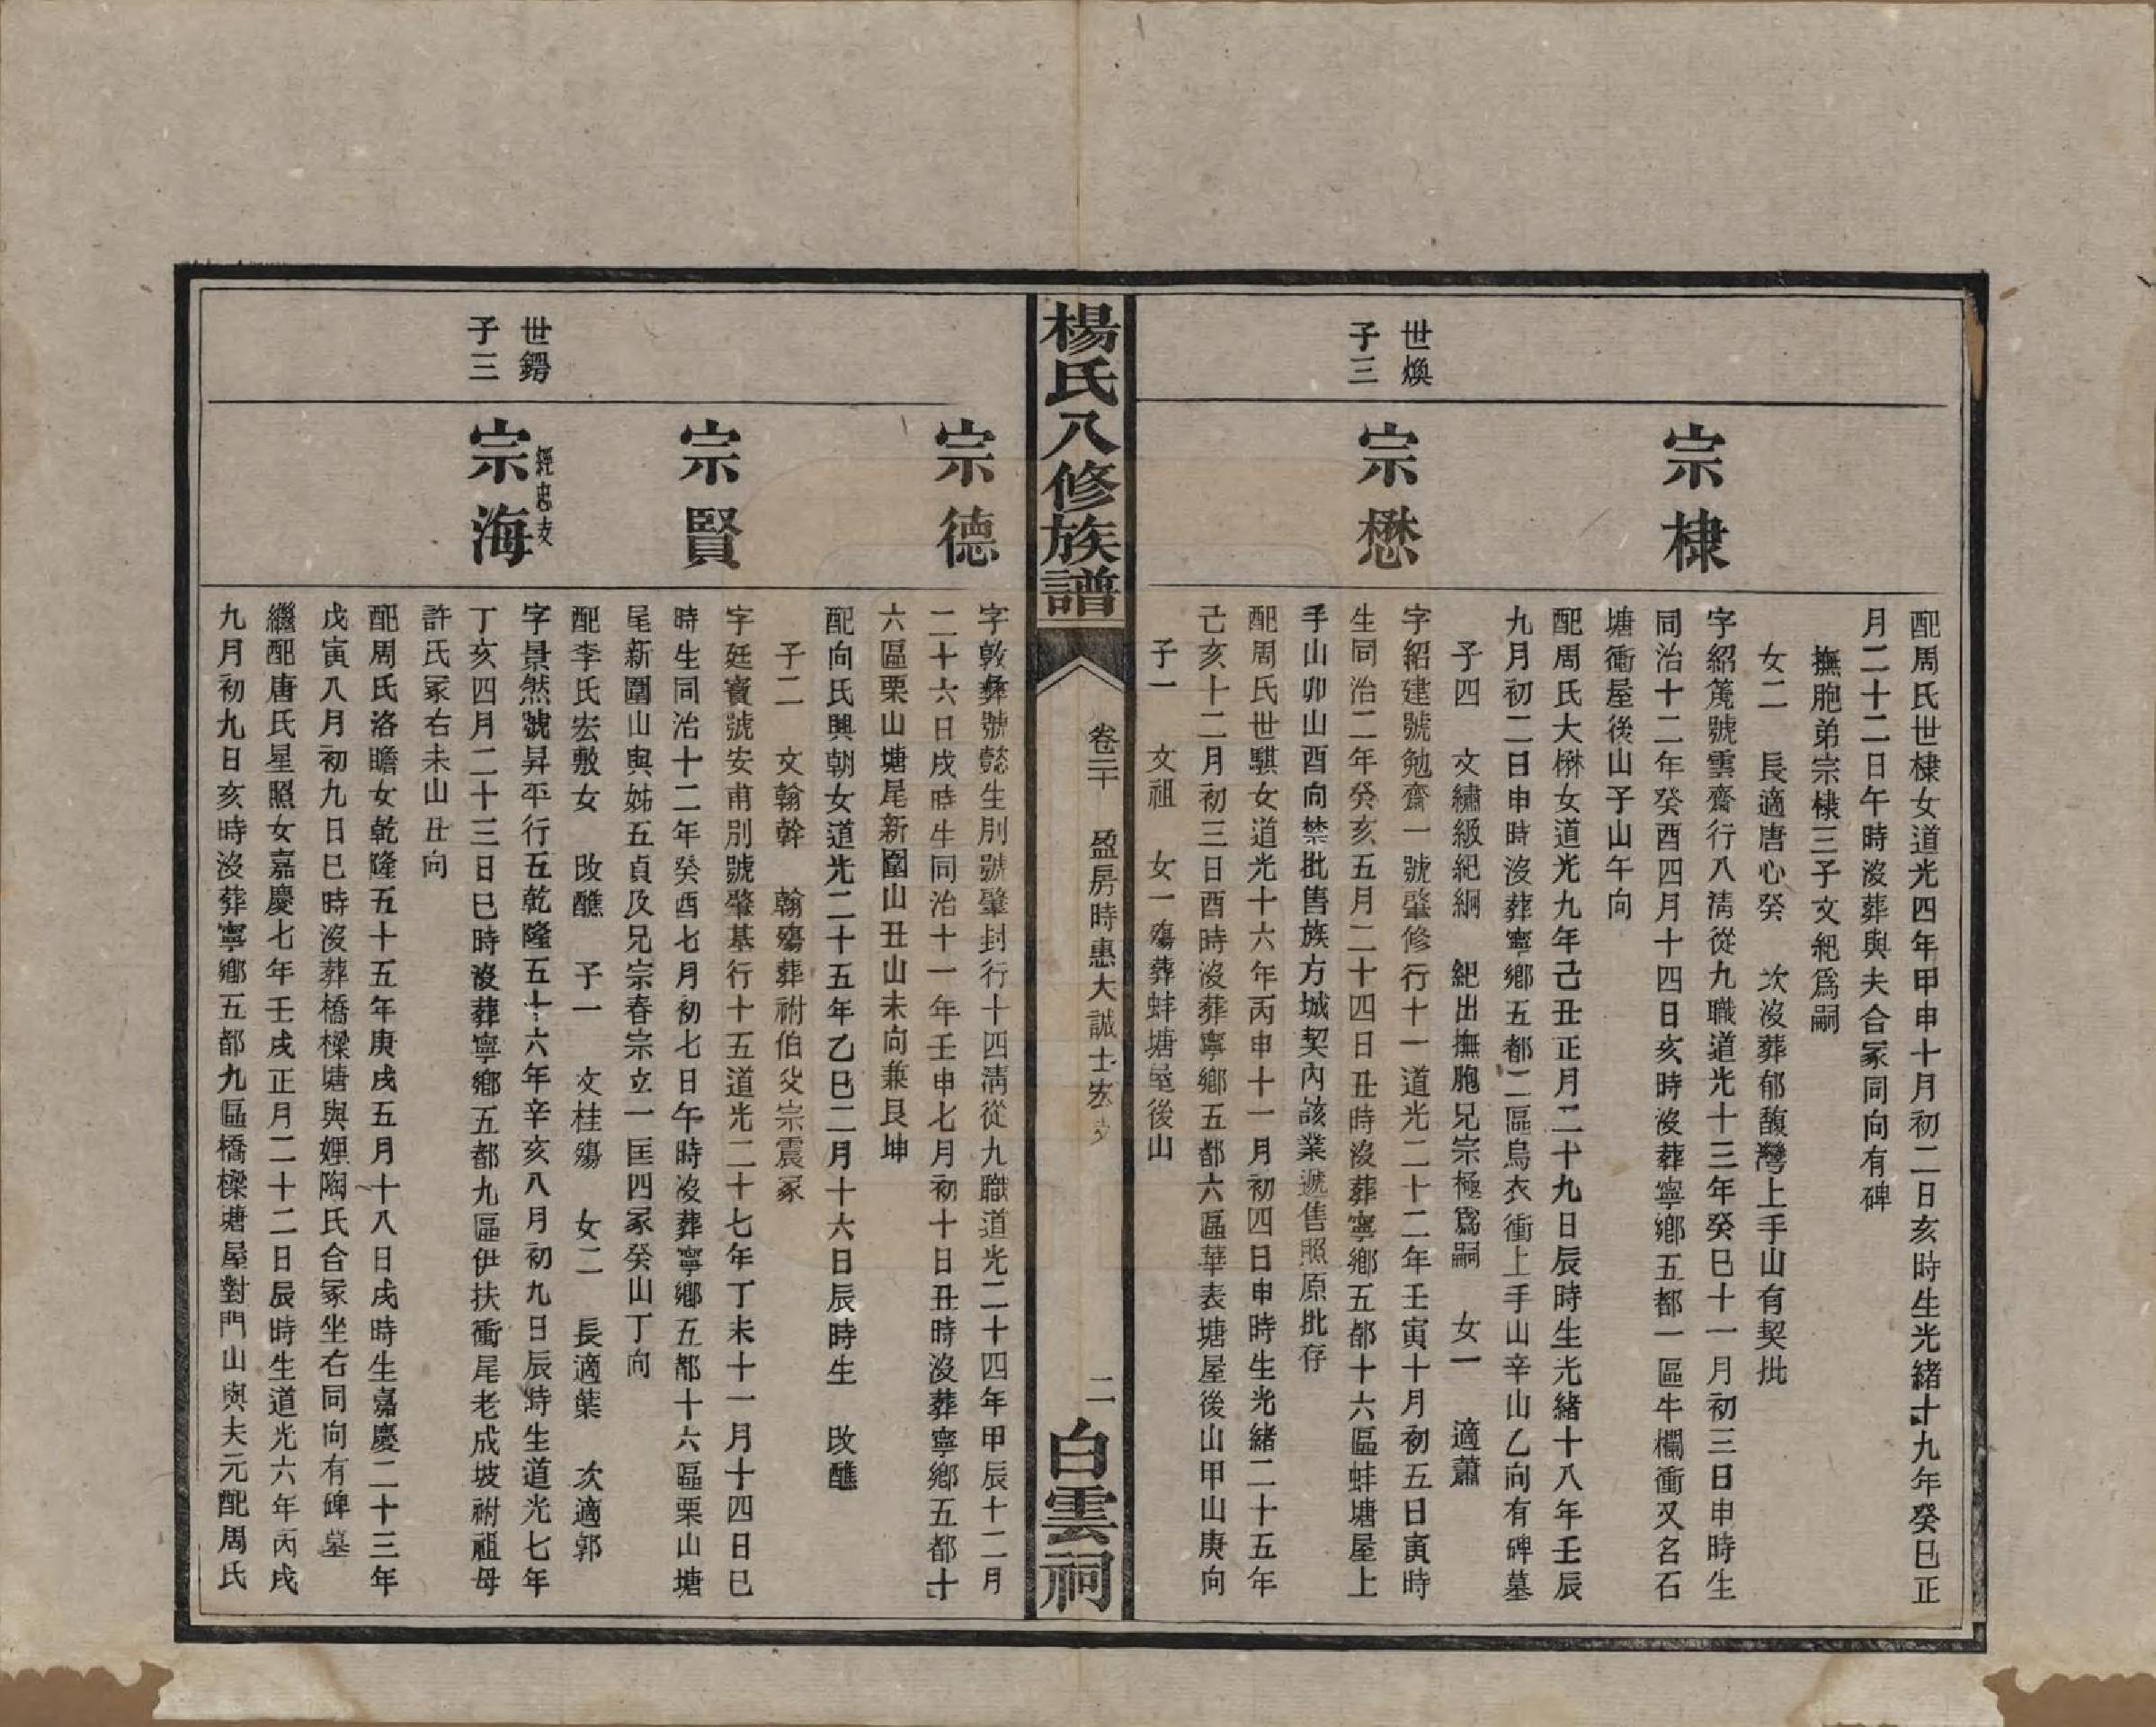 配周氏世棣女道光四年甲申十月初二日亥時生光緒十九年癸巳正
月二十二日午時沒葬與夫合冢同向有碑
撫胞弟宗棣三子文紀爲嗣
女二 長適唐心癸 次沒葬郁馥灣上手山有契批
宗棣
字紹篪號雲齋行八清從九職道光十三年癸巳十一月初三日申時生
同治十二年癸酉四月十四日亥時沒葬寧鄉五都一區牛欄衝又名石
塘衝屋後山子山午向
配周氏大楙女道光九年己丑正月二十九日辰時生光緒十八年壬辰
九月初二日申時沒葬寧鄉五都二區烏衣衝上手山辛山乙向有碑墓
子四 文繡級紀綱 紀出撫胞兄宗極爲嗣 女一 適蕭
世煥
子三
宗懋
字紹建號勉齋一號肇修行十一道光二十二年壬寅十月初五日寅時
生同治二年癸亥五月二十四日丑時沒葬寧鄉五都十六區蚌塘屋上
手山卯山酉向禁批售族方城契內該業遞售照原批存
配周氏世騏女道光十六年丙申十一月初四日申時生光緒二十五年
己亥十二月初三日酉時沒葬寧鄉五都六區華表塘屋後山甲山庚向
子一 文祖 女一殤葬蚌塘屋後山
楊氏八修族譜
卷二十 盈房時惠大誠士宏支
二
白雲祠
宗德
字敦彝號懿生別號肇封行十四清從九職道光二十四年甲辰十二月
二十六日戌時生同治十一年壬申七月初十日丑時沒葬寧鄉五都十
六區栗山塘尾新圍山丑山未向兼艮坤
配向氏興朝女道光二十五年乙巳二月十六日辰時生 改醮
子二 文翰幹 翰殤葬祔伯父宗震冢
宗賢
字廷賓號安甫別號肇基行十五道光二十七年丁未十一月十四日巳
時生同治十二年癸酉七月初七日午時沒葬寧鄉五都十六區栗山塘
尾新圍山與姊五貞及兄宗春宗立一匡四冢癸山丁向
配李氏宏敷女 改醮 子一 文桂殤 女二 長適葉 次適郭
世鍔
子三
經忠支
宗海
字景然號昇平行五乾隆五十六年辛亥八月初九日辰時生道光七年
丁亥四月二十三日巳時沒葬寧鄉五都九區伊扶衝尾老成坡祔祖母
許氏冢右未山丑向
配周氏洛瞻女乾隆五十五年庚戌五月十八日戌時生嘉慶二十三年
戊寅八月初九日巳時沒葬橋樑塘與娌陶氏合冢坐右同向有碑墓
繼配唐氏星照女嘉慶七年壬戌正月二十二日辰時生道光六年丙戌
九月初九日亥時沒葬寧鄉五都九區橋樑塘屋對門山與夫元配周氏